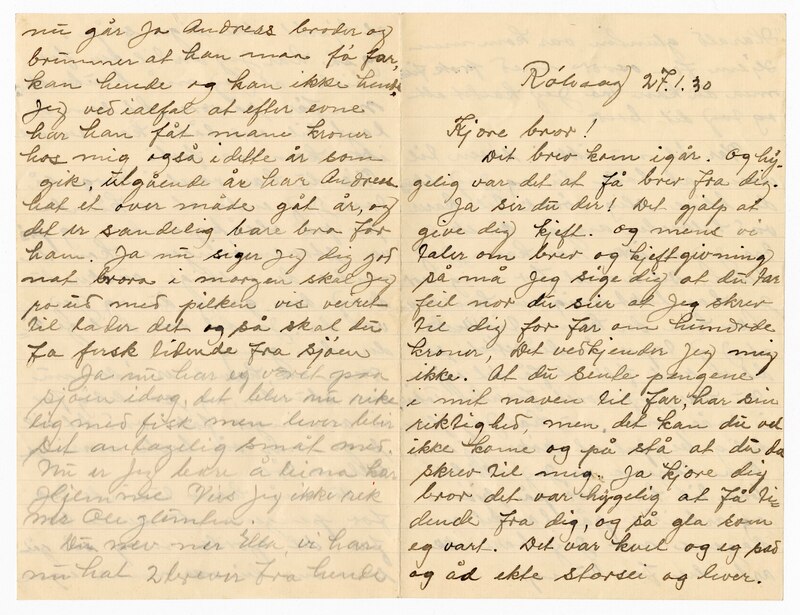 Rølvaag 27.1.30
Kjøre bror!
Dit brev kom igår. Og hy-
gelig var det at få brev fra dig.
Ja sir du der! Det gjalp at
give dig kjeft. og mens vi
taler om brev og kjeftgivning
så må Jeg sige dig at du tar
feil nor du sier at Jeg skrev
til dig for far om hundrde
kroner, Det vedkjender Jeg mig
ikke. At du sente pengene
i mit naven til far, har sin
riktighed men det kan du vel
ikke kome og på stå at du da
skrev til mig. Ja kjøre dig
bror det var hygelig at få ti-
dende fra dig, og så gla som
eg vart. Det var kvel og eg sad
og åd ekte storsei og lever.
nu går Jo Andreas broder og
brummer at han maa få far,
kan hende og kan ikke hende
Jeg ved ialfal at efter evne
har han fåt mane kroner
hos mig også i dette år som
gik, utgående år har Andreas
hat et over måde gåt år, og
det er sandelig bare bra for
ham. Ja nu siger Jeg dig god
nat brora i morgen skal Jeg
ro ud med pilken vis veiret
til lader det og så skal du
fa fersk tidende fra sjøen
Ja nu har eg været paa
sjøen idag, det blir nu rike
lig med fisk men lever blir
det antagelig småt med.
Nu er Jeg bare å leina har
Hjemme Vis Jeg ikke rik
ner Ole
Du nev ner Ella, vi har
nu hat 2 brever fra hende